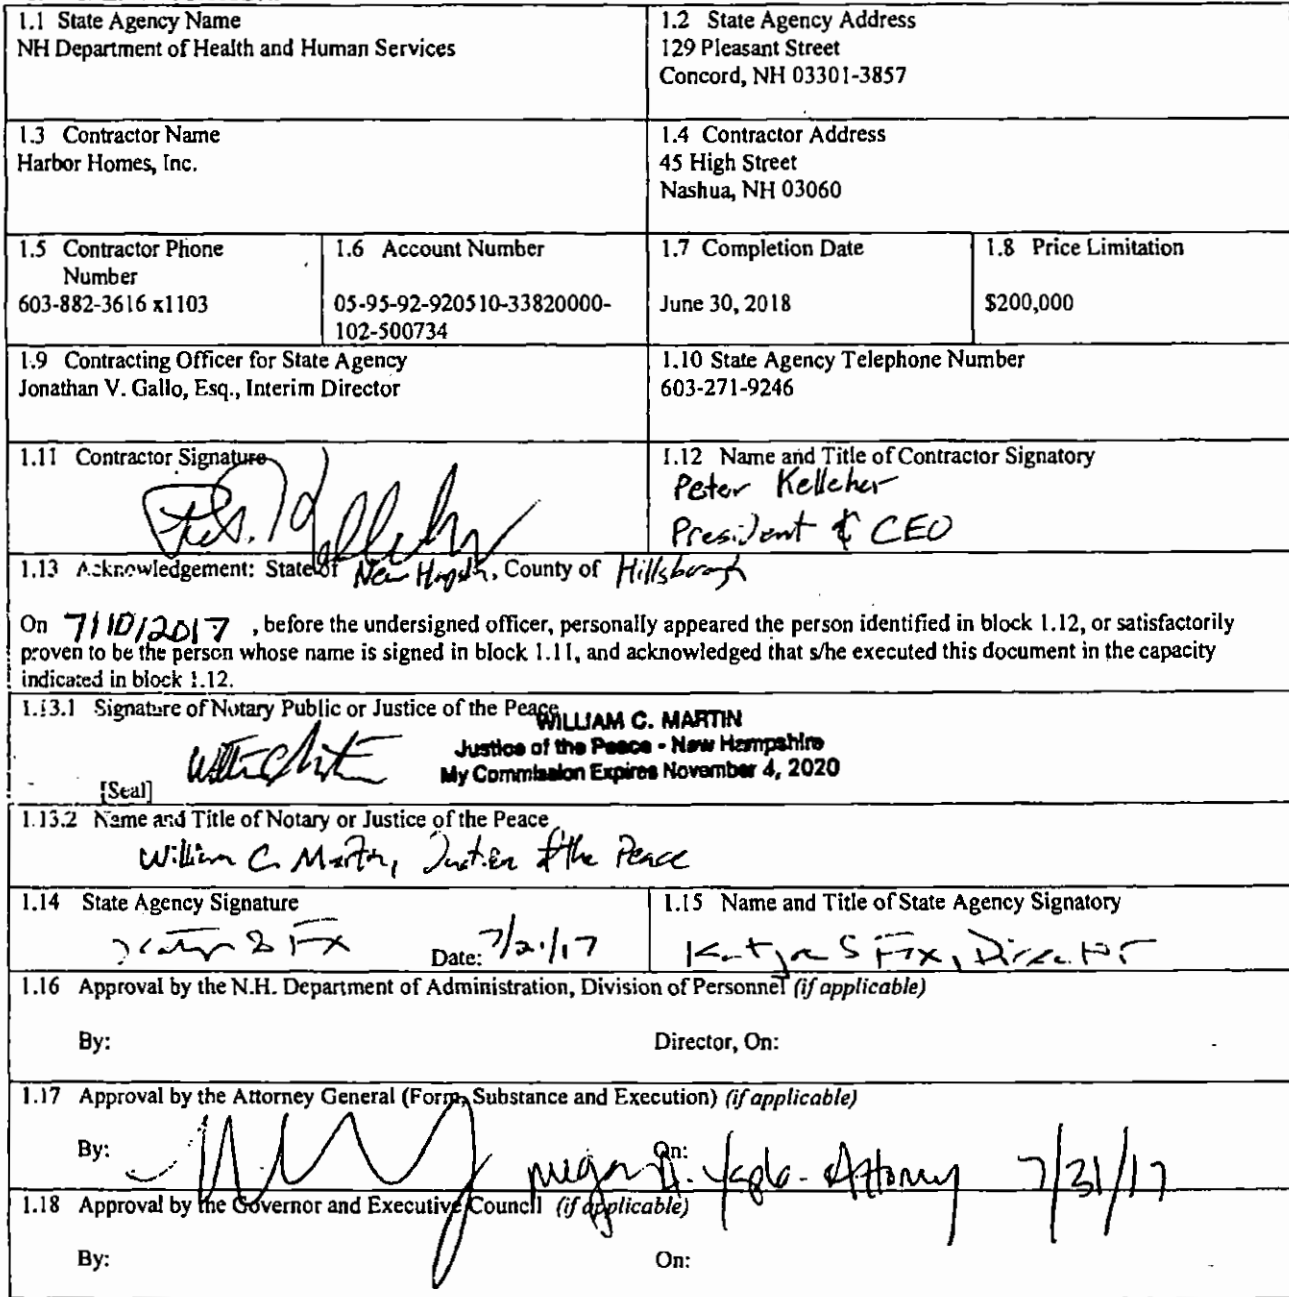 1.1 State Agency Name
NH Department of Health and Human Services
1.2 State Agency Address
129 Pleasant Street
Concord, NH 03301-3857
1.3 Contractor Name
Harbor Homes, Inc.
1.4 Contractor Address
45 High Street
Nashua, NH 03060
1.5 Contractor Phone
Number
603-882-3616 x1103
1.6 Account Number
05-95-92-920510-33820000-
102-500734
1.7 Completion Date
June 30, 2018
1.8 Price Limitation
$200,000
1.9 Contracting Officer for State Agency
Jonathan V. Gallo, Esq., Interim Director
1.10 State Agency Telephone Number
603-271-9246
1.11 Contractor Signature
1.12 Name and Title of Contractor Signatory
Peter Kelleher
President & CEO
1.13 Acknowledgement: State of New Hampshire, County of Hillsborough
On 7/10/2017 , before the undersigned officer, personally appeared the person identified in block 1.12, or satisfactorily
proven to be the person whose name is signed in block 1.11, and acknowledged that s/he executed this document in the capacity
indicated in block 1.12.
1.13.1 Signature of Notary Public or Justice of the Peace
WILLIAM C. MARTIN
Justice of the Peace - New Hampshire
My Commission Expires November 4, 2020
[Seal]
1.13.2 Name and Title of Notary or Justice of the Peace
William C. Martin, Justice of the Peace
1.14 State Agency Signature
Date: 7/21/17
1.15 Name and Title of State Agency Signatory
Katja S Fox, Director
1.16 Approval by the N.H. Department of Administration, Division of Personnel (if applicable)
By: Director, On:
1.17 Approval by the Attorney General (Form, Substance and Execution) (if applicable)
By: On: Attorney 7/31/17
1.18 Approval by the Governor and Executive Council (if applicable)
By: On: